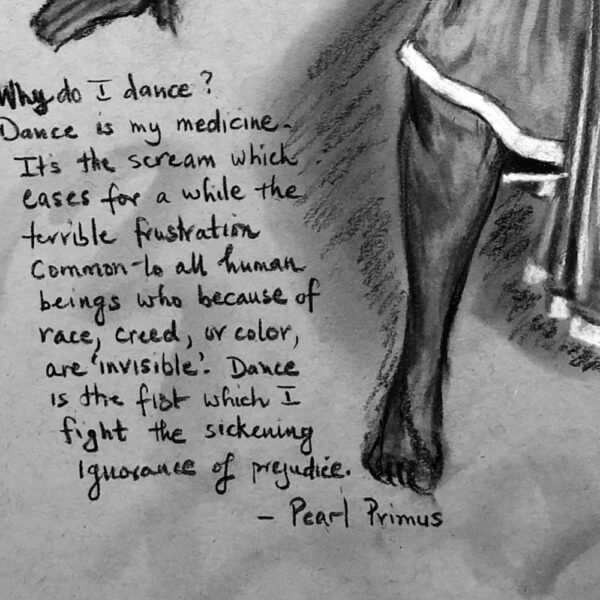 Why do I dance?
Dance is my medicine.
It's the scream which
eases for a while the
terrible frustration
common to all human
beings who because of
race, creed, or color,
are 'invisible'. Dance
is the fist which I
fight the sickening
ignorance of prejudice.
- Pearl Primus